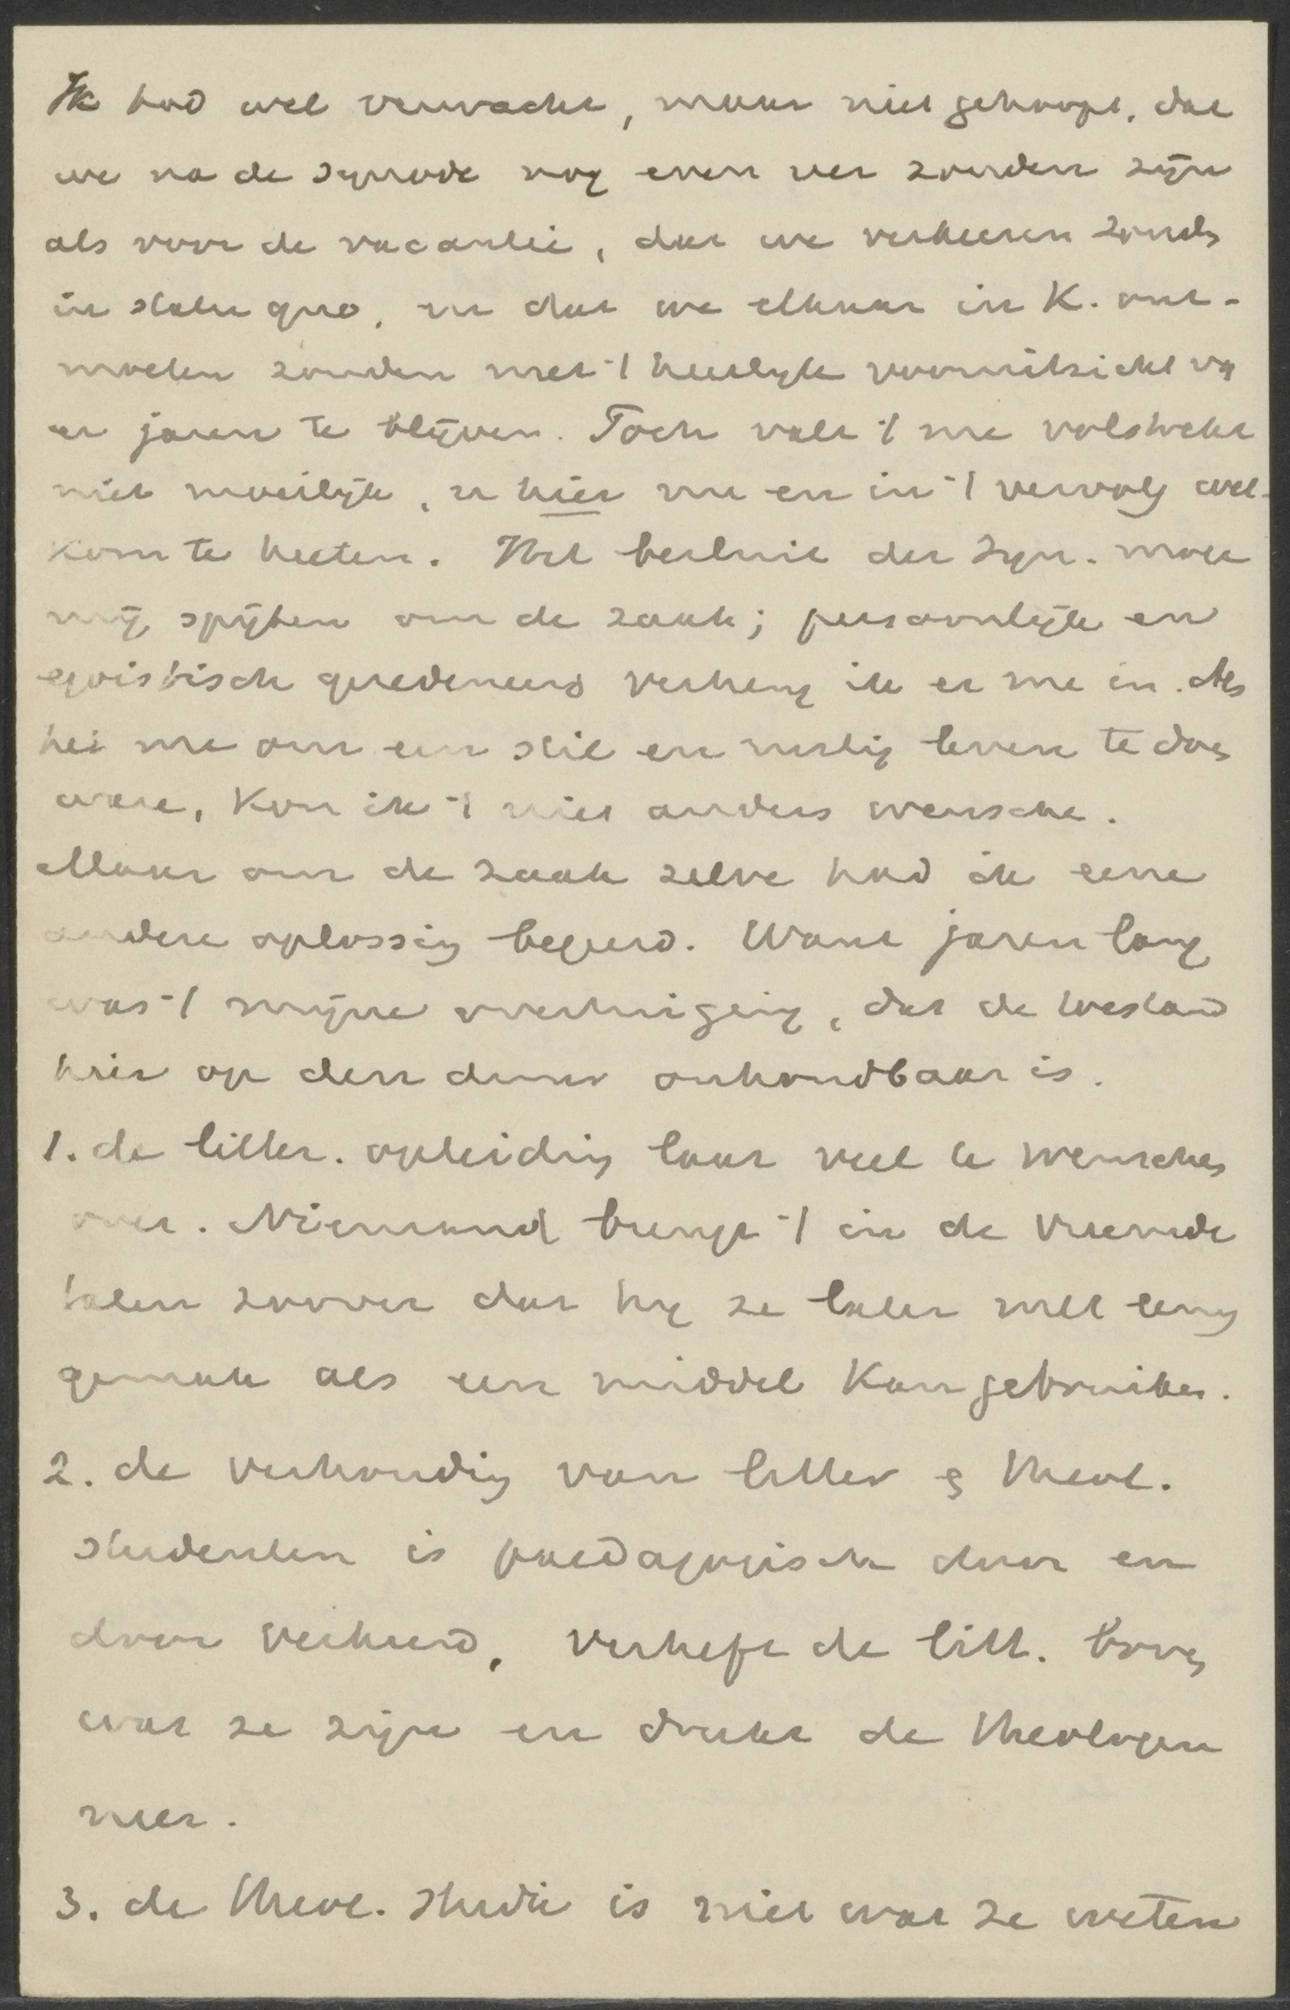 Ik had wel verwacht, maar niet gehoopt, dat
we na de synode nog even ver zouden zijn
als voor de vacantie, dat we verkeeren zouden
in statu quo, en dat we elkaar in K. ont-
moeten zouden met 't heerlijk vooruitzicht van
er jaren te blijven. Toch valt 't me volstrekt
niet moeilijk, u hier nu en in 't vervolg wel-
kom te heeten. Het besluit der Syn. moge
mij spijten om de zaak; persoonlijk en
egoistisch geredeneerd verheug ik er me in. Als
het me om een stil en rustig leven te doen
ware, kon ik 't niet anders wensche.
Maar om de zaak zelve had ik eene
andere oplossing begeerd. Want jaren lang
was 't mijne overtuiging, dat de toestand
hier op den duur onhoudbaar is.
1. de litter. opleiding laat veel te wenschen
over. Niemand brengt 't in de vreemde
talen zoover dat hij ze later met eenig
gemak als een middel kan gebruiken.
2. de verhouding van litter & theol.
studenten is paedagogisch door en
door verkeerd, verheft de litt. boven
wat ze zijn en drukt de theologen
neer.
3. de theol. studie is niet wat ze weten